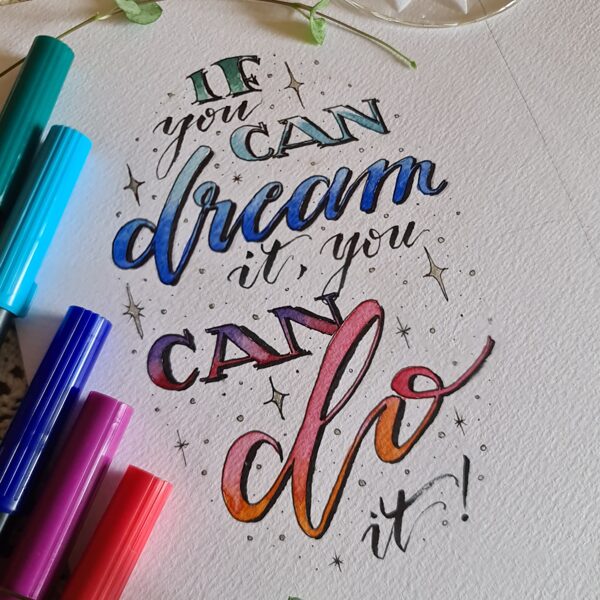 IF
you CAN
dream
it, you
CAN do
it!